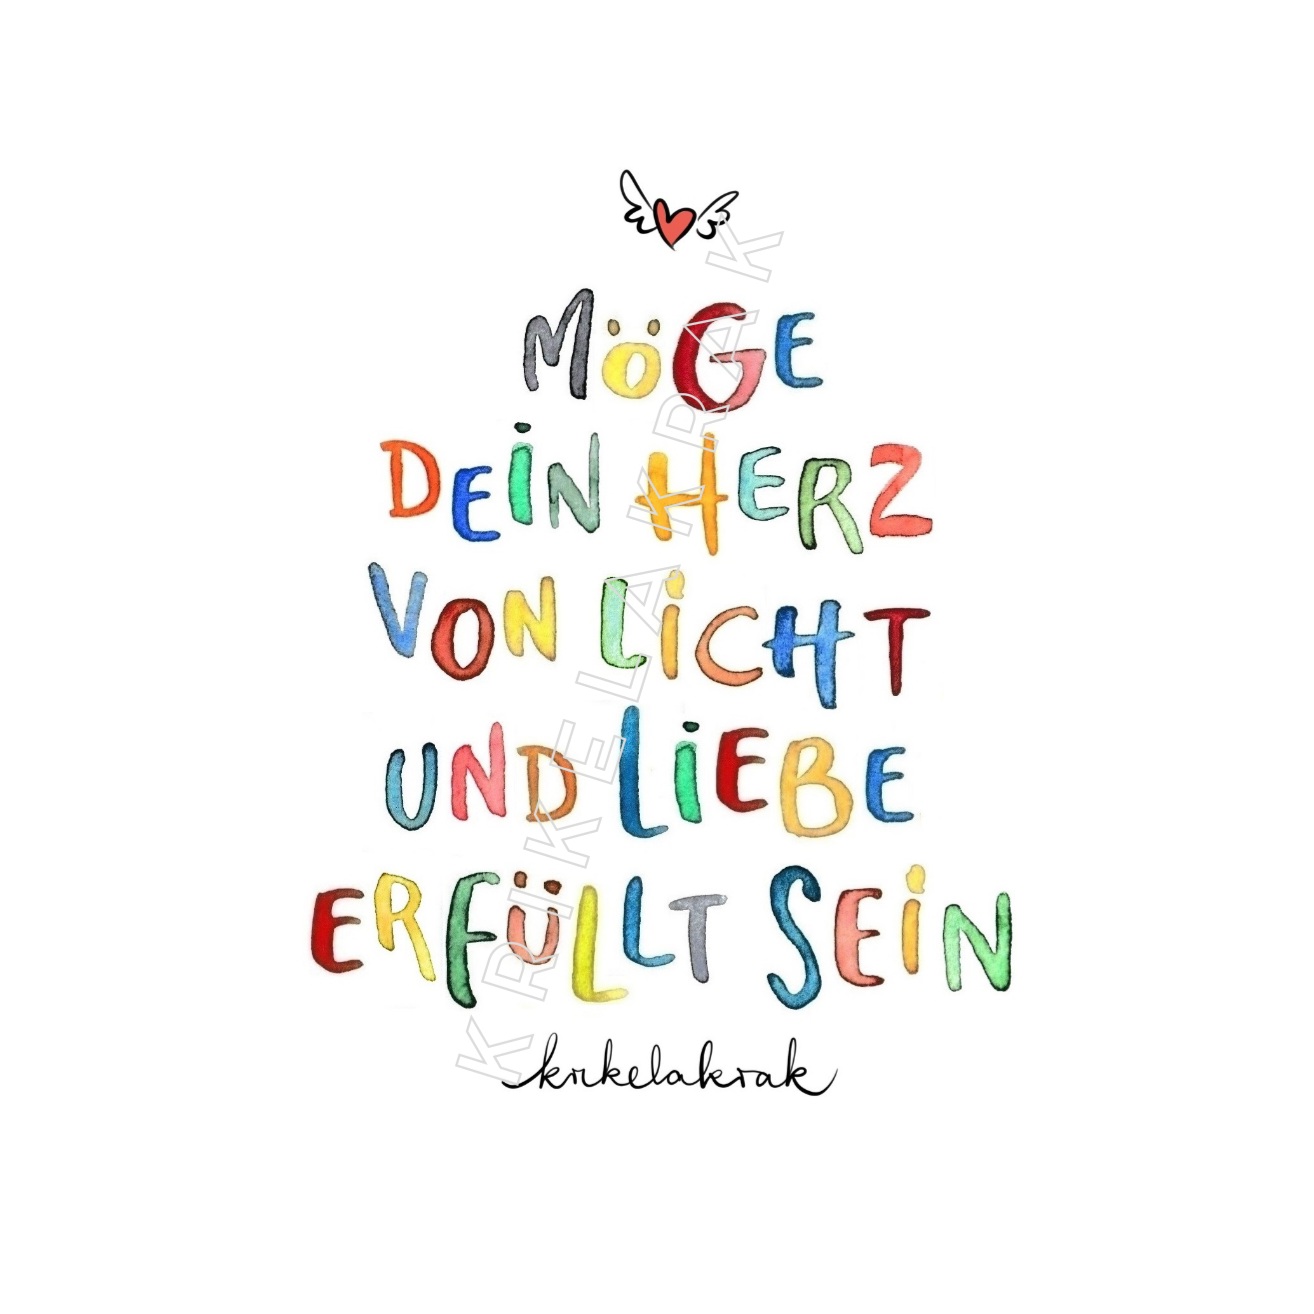 MöGE
DEiN HERZ
VON LiCHT
UND LiEBE
ERFÜLLT SEiN
krikelakrak
KRIKELAKRAK